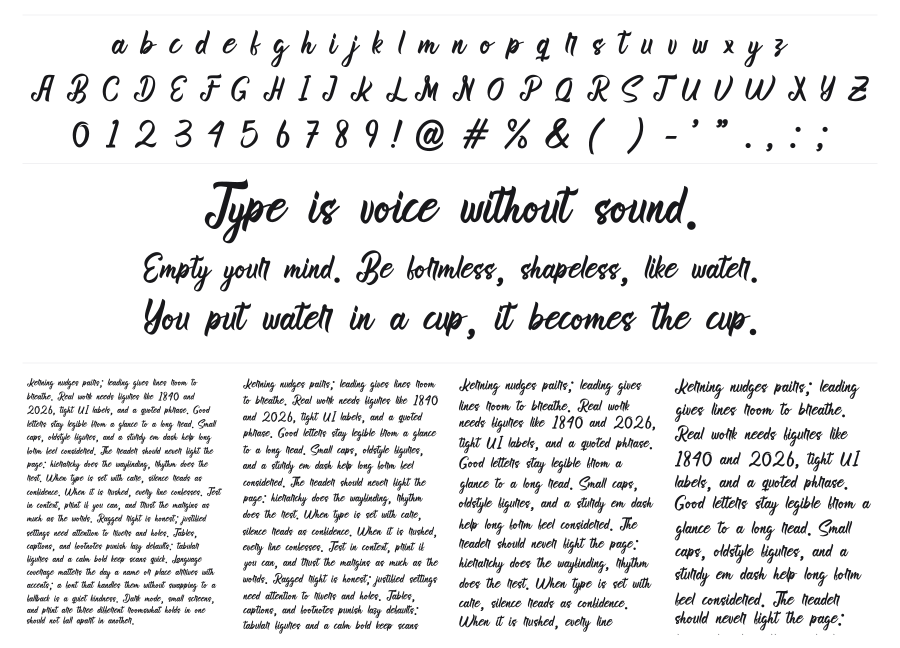 a b c d e f g h i j k l m n o p q r s t u v w x y z
A B C D E F G H I J K L M N O P Q R S T U V W X Y Z
0 1 2 3 4 5 6 7 8 9 ! @ # % & ( ) - ’ ” . , : ;
Type is voice without sound.
Empty your mind. Be formless, shapeless, like water.
You put water in a cup, it becomes the cup.
Kerning nudges pairs; leading gives lines room to
breathe. Real work needs figures like 1840 and
2026, tight UI labels, and a quoted phrase. Good
letters stay legible from a glance to a long read. Small
caps, oldstyle figures, and a sturdy em dash help long
form feel considered. The reader should never fight the
page: hierarchy does the wayfinding, rhythm does the
rest. When type is set with care, silence reads as
confidence. When it is rushed, every line confesses. Test
in context, print if you can, and trust the margins as
much as the words. Ragged right is honest; justified
settings need attention to rivers and holes. Tables,
captions, and footnotes punish lazy defaults: tabular
figures and a calm bold keep scans quick. Language
coverage matters the day a name or place arrives with
accents; a font that handles them without swapping to a
fallback is a quiet kindness. Dark mode, small screens,
and print are three different rooms; what holds in one
should not fall apart in another.
Kerning nudges pairs; leading gives lines room
to breathe. Real work needs figures like 1840
and 2026, tight UI labels, and a quoted
phrase. Good letters stay legible from a glance
to a long read. Small caps, oldstyle figures,
and a sturdy em dash help long form feel
considered. The reader should never fight the
page: hierarchy does the wayfinding, rhythm
does the rest. When type is set with care,
silence reads as confidence. When it is rushed,
every line confesses. Test in context, print if
you can, and trust the margins as much as the
words. Ragged right is honest; justified settings
need attention to rivers and holes. Tables,
captions, and footnotes punish lazy defaults:
tabular figures and a calm bold keep scans
Kerning nudges pairs; leading gives
lines room to breathe. Real work
needs figures like 1840 and 2026,
tight UI labels, and a quoted phrase.
Good letters stay legible from a
glance to a long read. Small caps,
oldstyle figures, and a sturdy em dash
help long form feel considered. The
reader should never fight the page:
hierarchy does the wayfinding, rhythm
does the rest. When type is set with
care, silence reads as confidence.
When it is rushed, every line
Kerning nudges pairs; leading
gives lines room to breathe.
Real work needs figures like
1840 and 2026, tight UI
labels, and a quoted phrase.
Good letters stay legible from a
glance to a long read. Small
caps, oldstyle figures, and a
sturdy em dash help long form
feel considered. The reader
should never fight the page: